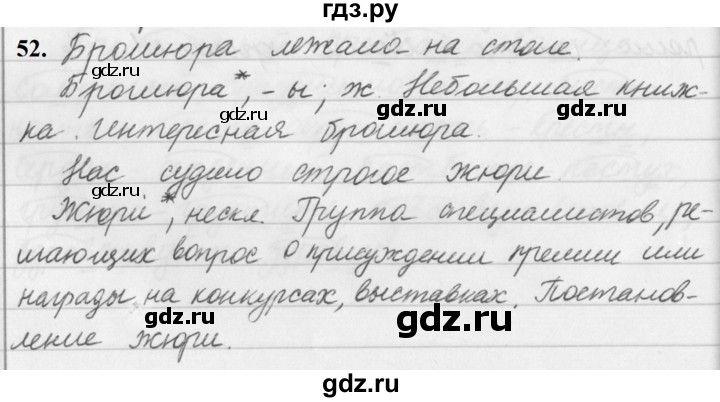 гдз.ру
52. Брошюра лежало на столе.
Брошюра*, -ы; ж. Небольшая книж-
gdz.ru gdz.ru
ка. Интересная брошюра.
Нас судило строгое жюри.
Жюри*, нескл. Группа специалистов, ре-
шающих вопрос о присуждении премии или
награды на конкурсах, выставках. Постанов-
gdz.ru gdz.ru
ление жюри.
gdz.ru